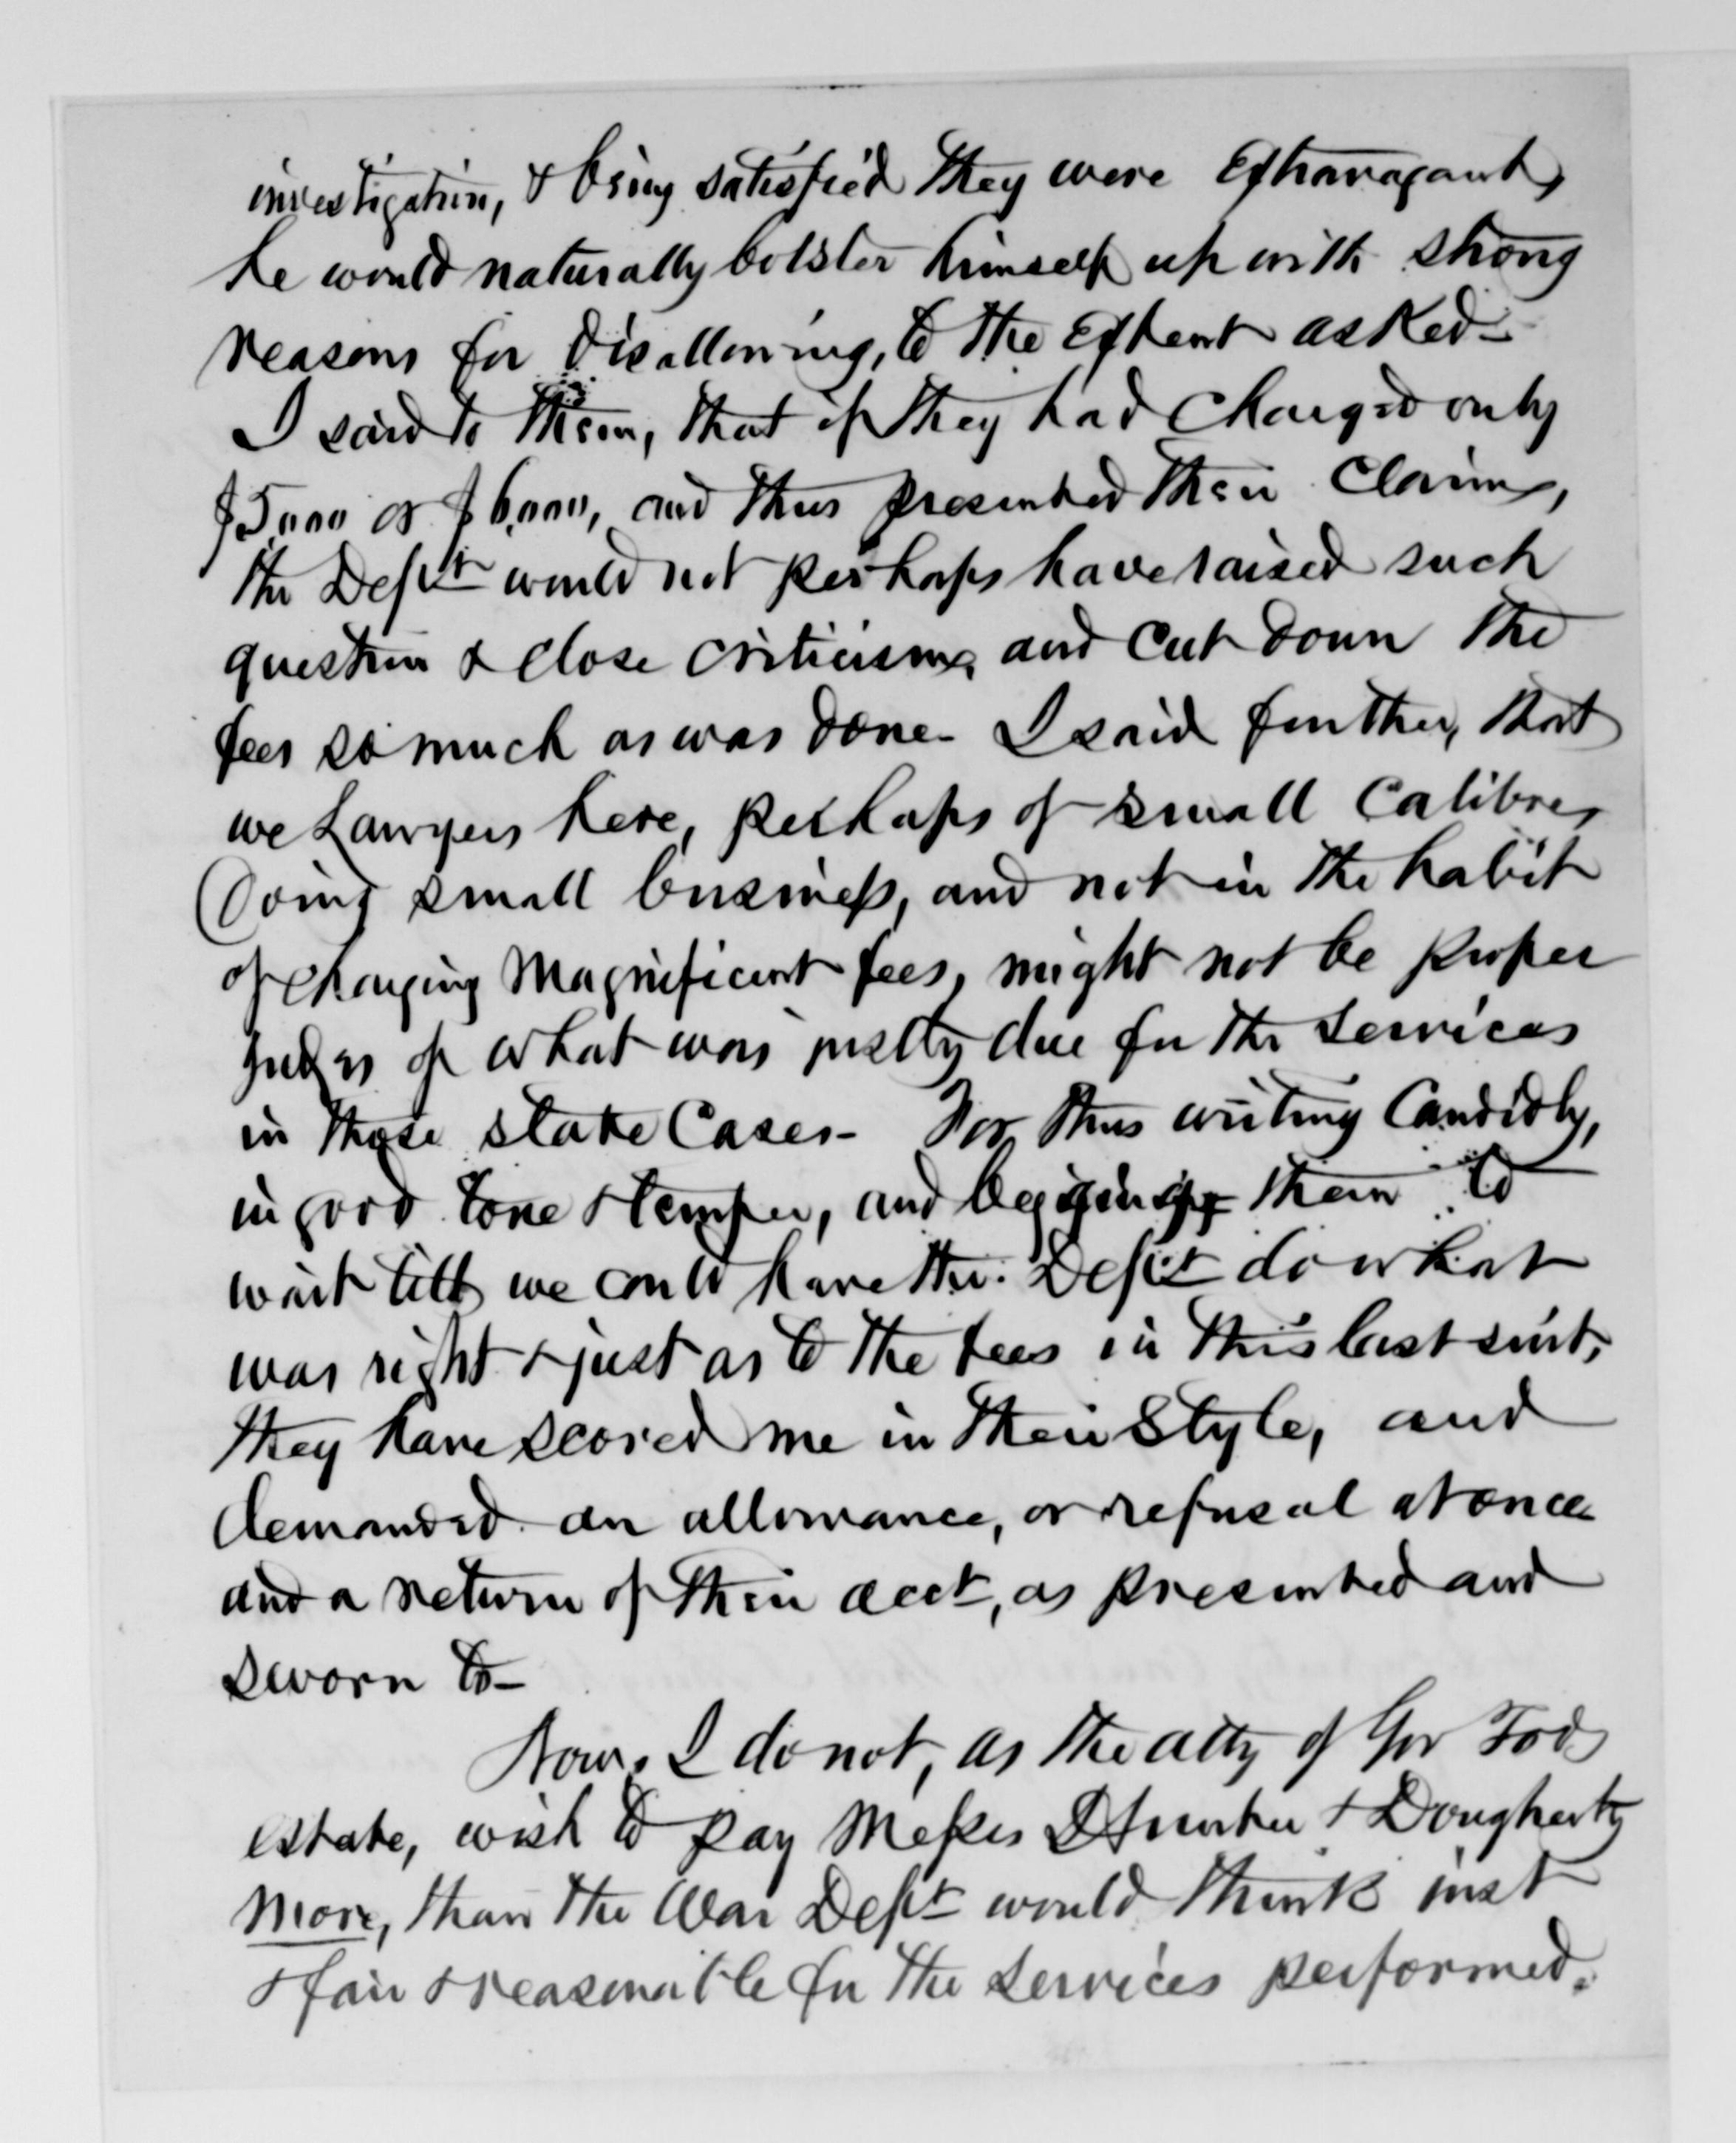 investigation, & being satisfied they were Extravagant,
he would naturally bolster himself up with strong
reasons for disallowing, to the Extent asked -
I said to them, that if they had charged only
$5,000 or $6,000, and thus presented their Claims,
the Dept would not perhaps have raised such
question & close criticisms, and cut down the
fees so much as was done - I said further, that
we Lawyers here, perhaps of small Calibre,
Doing small business, and not in the habit
of charging Magnificent fees, might not be proper
judges of what was justly due for the services
in those state Cases - For thus writing Candidly,
in good tone & temper, and begging them to
wait till we could have the Dept do what
was right & just as to the fees in this last suit,
they have scored me in their style, and
demanded an allowance, or refusal at once
and a return of their acct, as presented and
sworn to -
Now, I do not, as the atty of Gov Tods
estate, wish to pay Messrs & Dougherty
more, than the War Dept would think just
& fair & reasonable for the services performed.